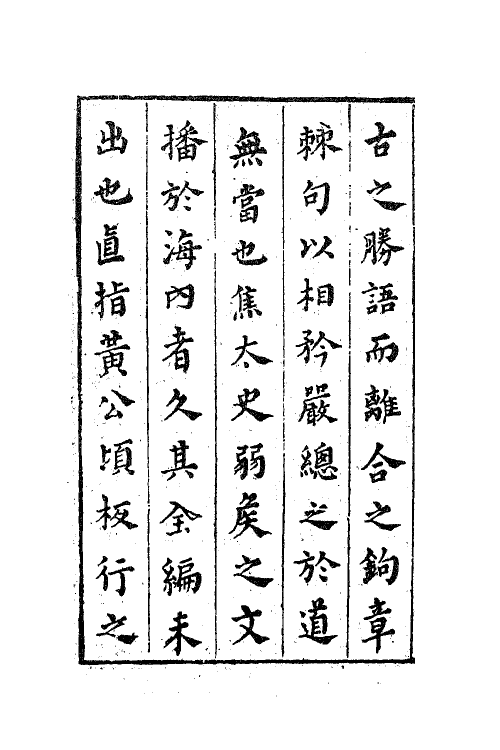 古之勝語而離合之鉤章
棘句以相矜嚴總之於道
無當也焦太史弱矦之文
播於海內者久其全編未
出也直指黃公頃板行之